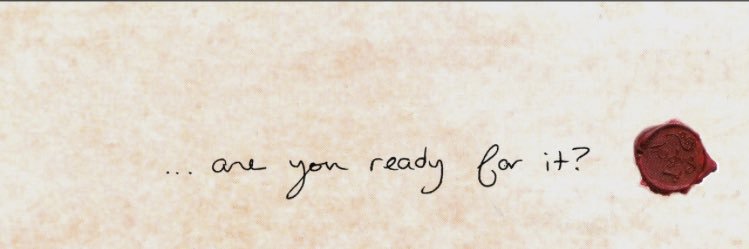 ... are you ready for it?